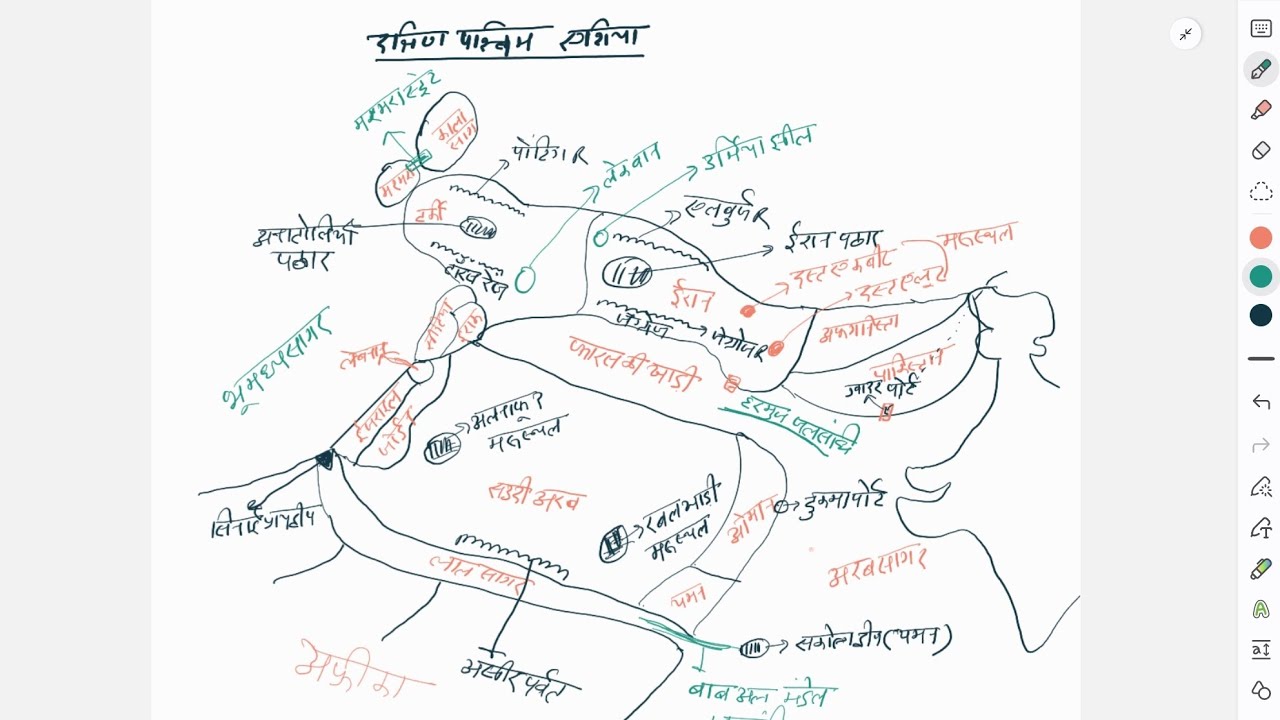 दक्षिण पश्चिम एशिया
मरमरा स्ट्रेट
काला
सागर
मरमरा
पोंटिक R
लेकवान
उर्मिया झील
टर्की
अनातोलिया
पठार
टॉरस रेंज
एलबुर्ज R
ईरान पठार
मरुस्थल
दस्त ए कवीर
दस्त ए लूट
ईरान
जेग्रोज
जेग्रोज R
अफगानिस्ता
पाकिस्तान
ग्वादर पोर्ट
सीरिया
इराक
लेबनान
भूमध्यसागर
फारस की खाड़ी
हरमुज जलसंधि
इजराइल
जॉर्डन
अलनाफूद
मरुस्थल
सिनाई प्रायद्वीप
सउदी अरब
रबल खाडी
मरुस्थल
ओमान
डुकमा पोर्ट
अरब सागर
लाल सागर
यमन
सकोत्रा द्वीप (यमन)
अफ्रीका
असीर पर्वत
बाब अल मंडेल